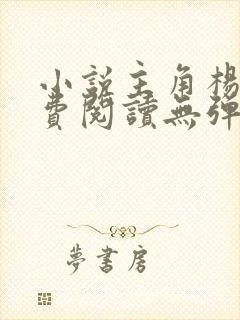 小說主角楊
費閱讀無彈
夢書房